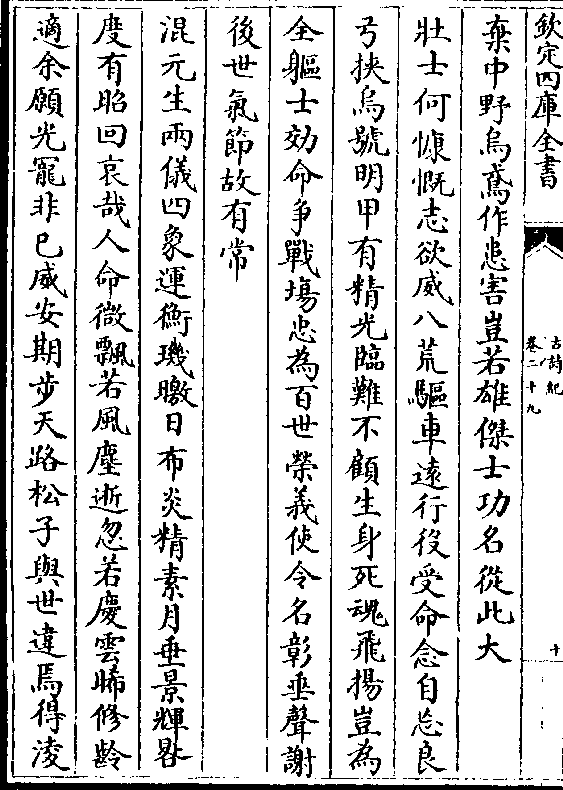 欽定四庫全書
古詩紀
卷二十九
十
棄中野烏鳶作患害豈若雄傑士功名從此大
壯士何慷慨志欲威八荒驅車遠行役受命念自忘良
弓挾烏號明甲有精光臨難不顧生身死魂飛揚豈為
全軀士効命争戰塲忠為百世榮義使令名彰垂聲謝
後世氣節故有常
混元生兩儀四象運衡璣曒日布炎精素月垂景輝晷
度有昭回哀哉人命微飄若風塵逝忽若慶雲晞修齡
適余願光寵非已威安期步天路松子與世違焉得淩